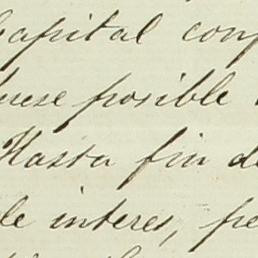 Capital con
uese posible
Hasta fin de
de interes, pe